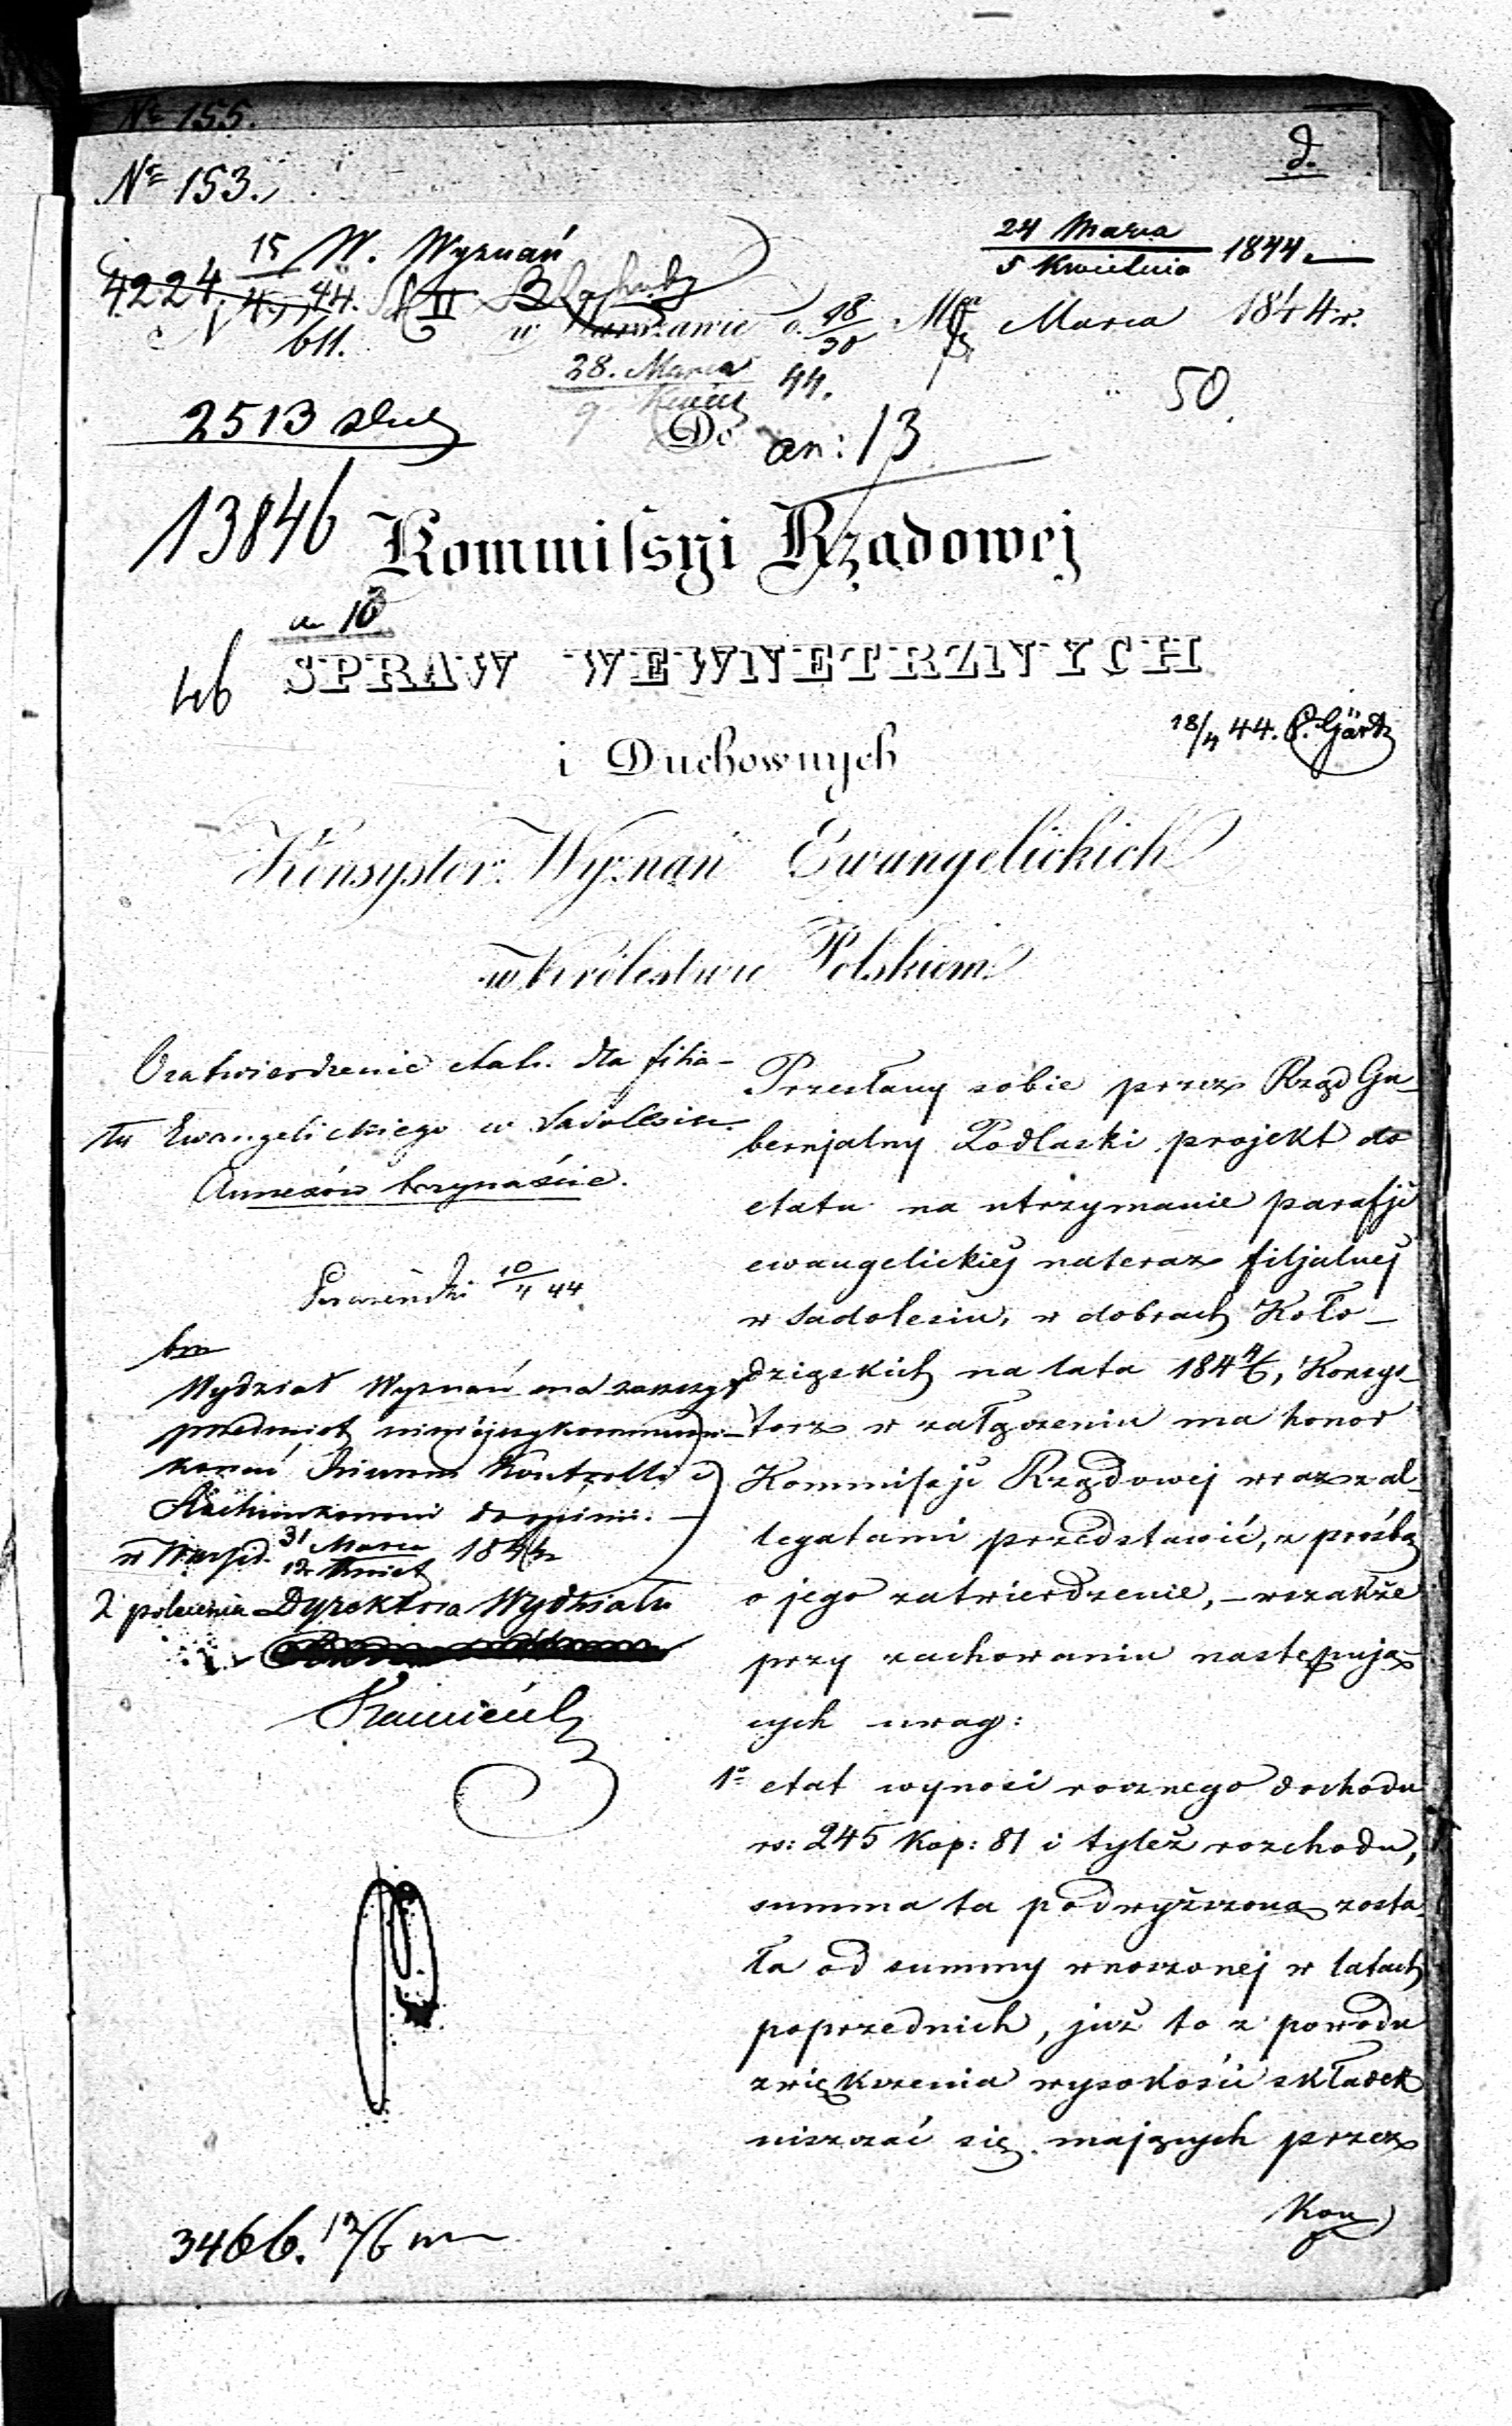 № 155.
№ 153.
d.
W. Wyznań
24 Marca
5 Kwietnia 1844.
4224.
w Warszawie d. 18/30 Marca 1844 r.
28. Marca 44.
50.
2513
Do an: 13
13846
Kommissyi Rządowej
SPRAW WEWNETRZNYCH
46
18/4 44.
i Duchownych
Konsystor: Wyznań Ewangelickich
w Królestwie Polskiem
O zatwierdzenie etatu dla filia-
łu Ewangelickiego w Sadolesiu.
Annexów trzynaście.
10/4 44
Wydział Wyznań ma zaszczyt
przedmiot niniejszy kommuni-
kować Kontrolli i
Rachunkowości do opinii.
31 Marca
12 Kwiet 1844
Z polecenia Dyrektora Wydziału
Przesłany sobie przez Rząd Gu-
bernjalny Podlaski projekt do
etatu na utrzymanie parafji
ewangelickiej nateraz filjalnej
w Sadolesiu, w dobrach Koło-
dziąskich na lata 184 4/6, Konsys-
torz w załączeniu ma honor
Kommissji Rządowej wraz z al-
legatami przedstawić, z prośbą
o jego zatwierdzenie, – wszakże
przy zachowaniu następują-
cych uwag:
1º etat wynosi rocznego dochodu
rs: 245 kop: 81 i tyleż rozchodu,
summa ta podwyższoną zosta-
ła od summy wnoszonej w latach
poprzednich, już to z powodu
zwiększenia wysokości składek
uiszczać się mających przez
Kon
3466. 12/6